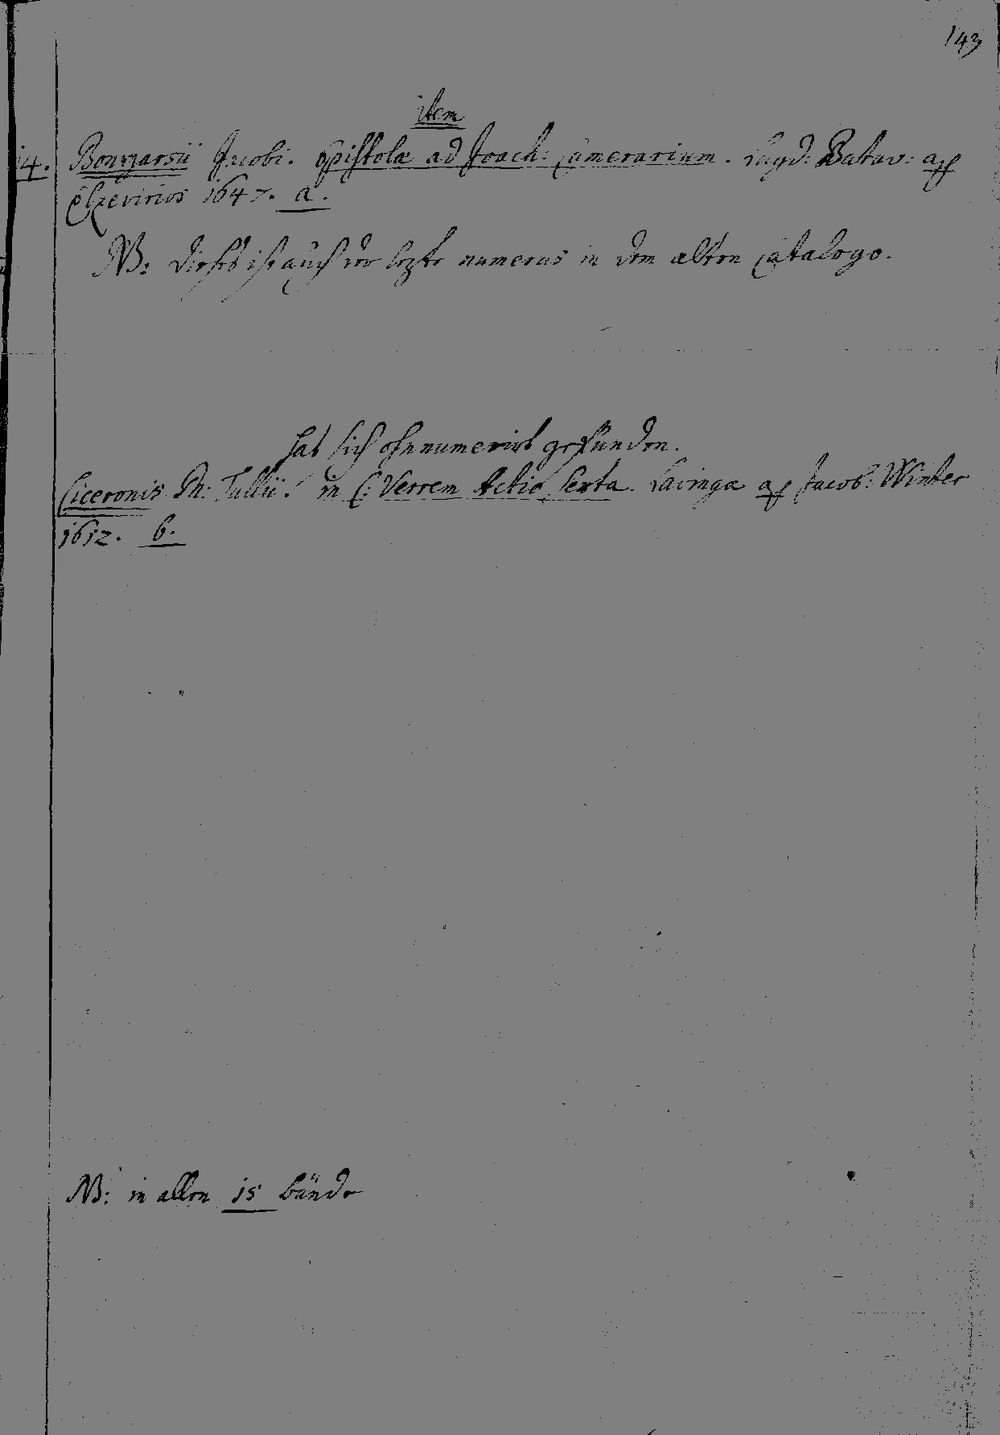 143
item
14. Bongarsii Jacobi. Epistolæ ad Joach: Camerarium. Lugd: Batav: ap
Elzevirios 1647. a.
NB: dießes ist auch der lezte numerus in dem alten Catalogo.
hat sich ohnnumerirt gefunden.
Ciceronis M: Tullii. in C: Verrem Actio Sexta. Lavingæ ap Jacob: Winter
1612. b.
NB: in allen 15 bände